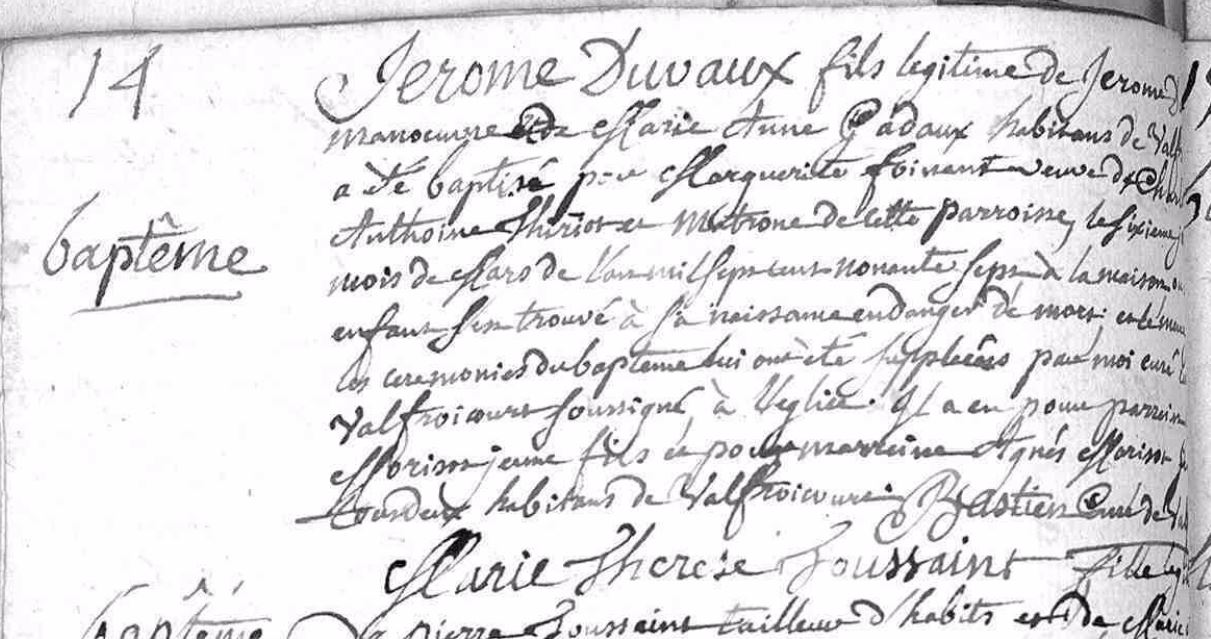 14
Jerome Duvaux fils legitime de Jerome d
manoeuvre et de Marie Anne Gadaux habitans de Valf
a été baptisé par Marguerite veuve de Char
Anthoine Thiriot et Matrone de cette parroisse, le sixieme j
baptême
mois de Mars de l'an mil sept cent nonante sept à la maison ou
enfant s'est trouvé à sa naissance en danger de mort. et le même
les ceremonies du baptême lui ont été supplées par moi curé de
Valfroicourt soussigné, à l'eglise. Il a eu pour parrein
Morisot jeune fils et pour marreine Agnés Morisot
tous deux habitans de Valfroicourt. Bastien Curé de Val
Marie Therese Toussaint fille leg
baptéme
Pierre Toussaint tailleur d'habits et de Marie